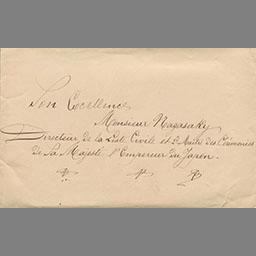 Son Excellence
Monsieur Nagasaky
Directeur de la Liste Civile et Maître des Cérémonies
de Sa Majesté l'Empereur du Japon.